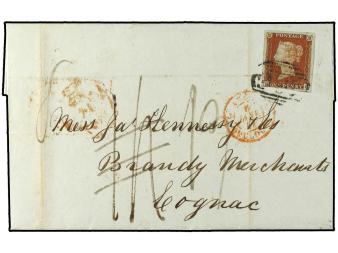 POSTAGE
ONE PENNY
Messrs Jas Hennessy & Co
Brandy Merchants
Cognac